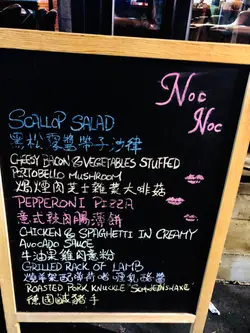 Noc
Noc
SCALLOP SALAD
黑松露醬帶子沙律
CHEESY BACON & VEGETABLES STUFFED
PORTOBELLO MUSHROOM
焗煙肉芝士雜菜大啡菇
PEPPERONI PIZZA
意式辣肉腸薄餅
CHICKEN & SPAGHETTI IN CREAMY
AVOCADO SAUCE
牛油果雞肉意粉
GRILLED RACK OF LAMB
燒羊架配薄荷啫喱乳酪醬
ROASTED PORK KNUCKLE "SCHWEINSHAXE"
德國鹹豬手